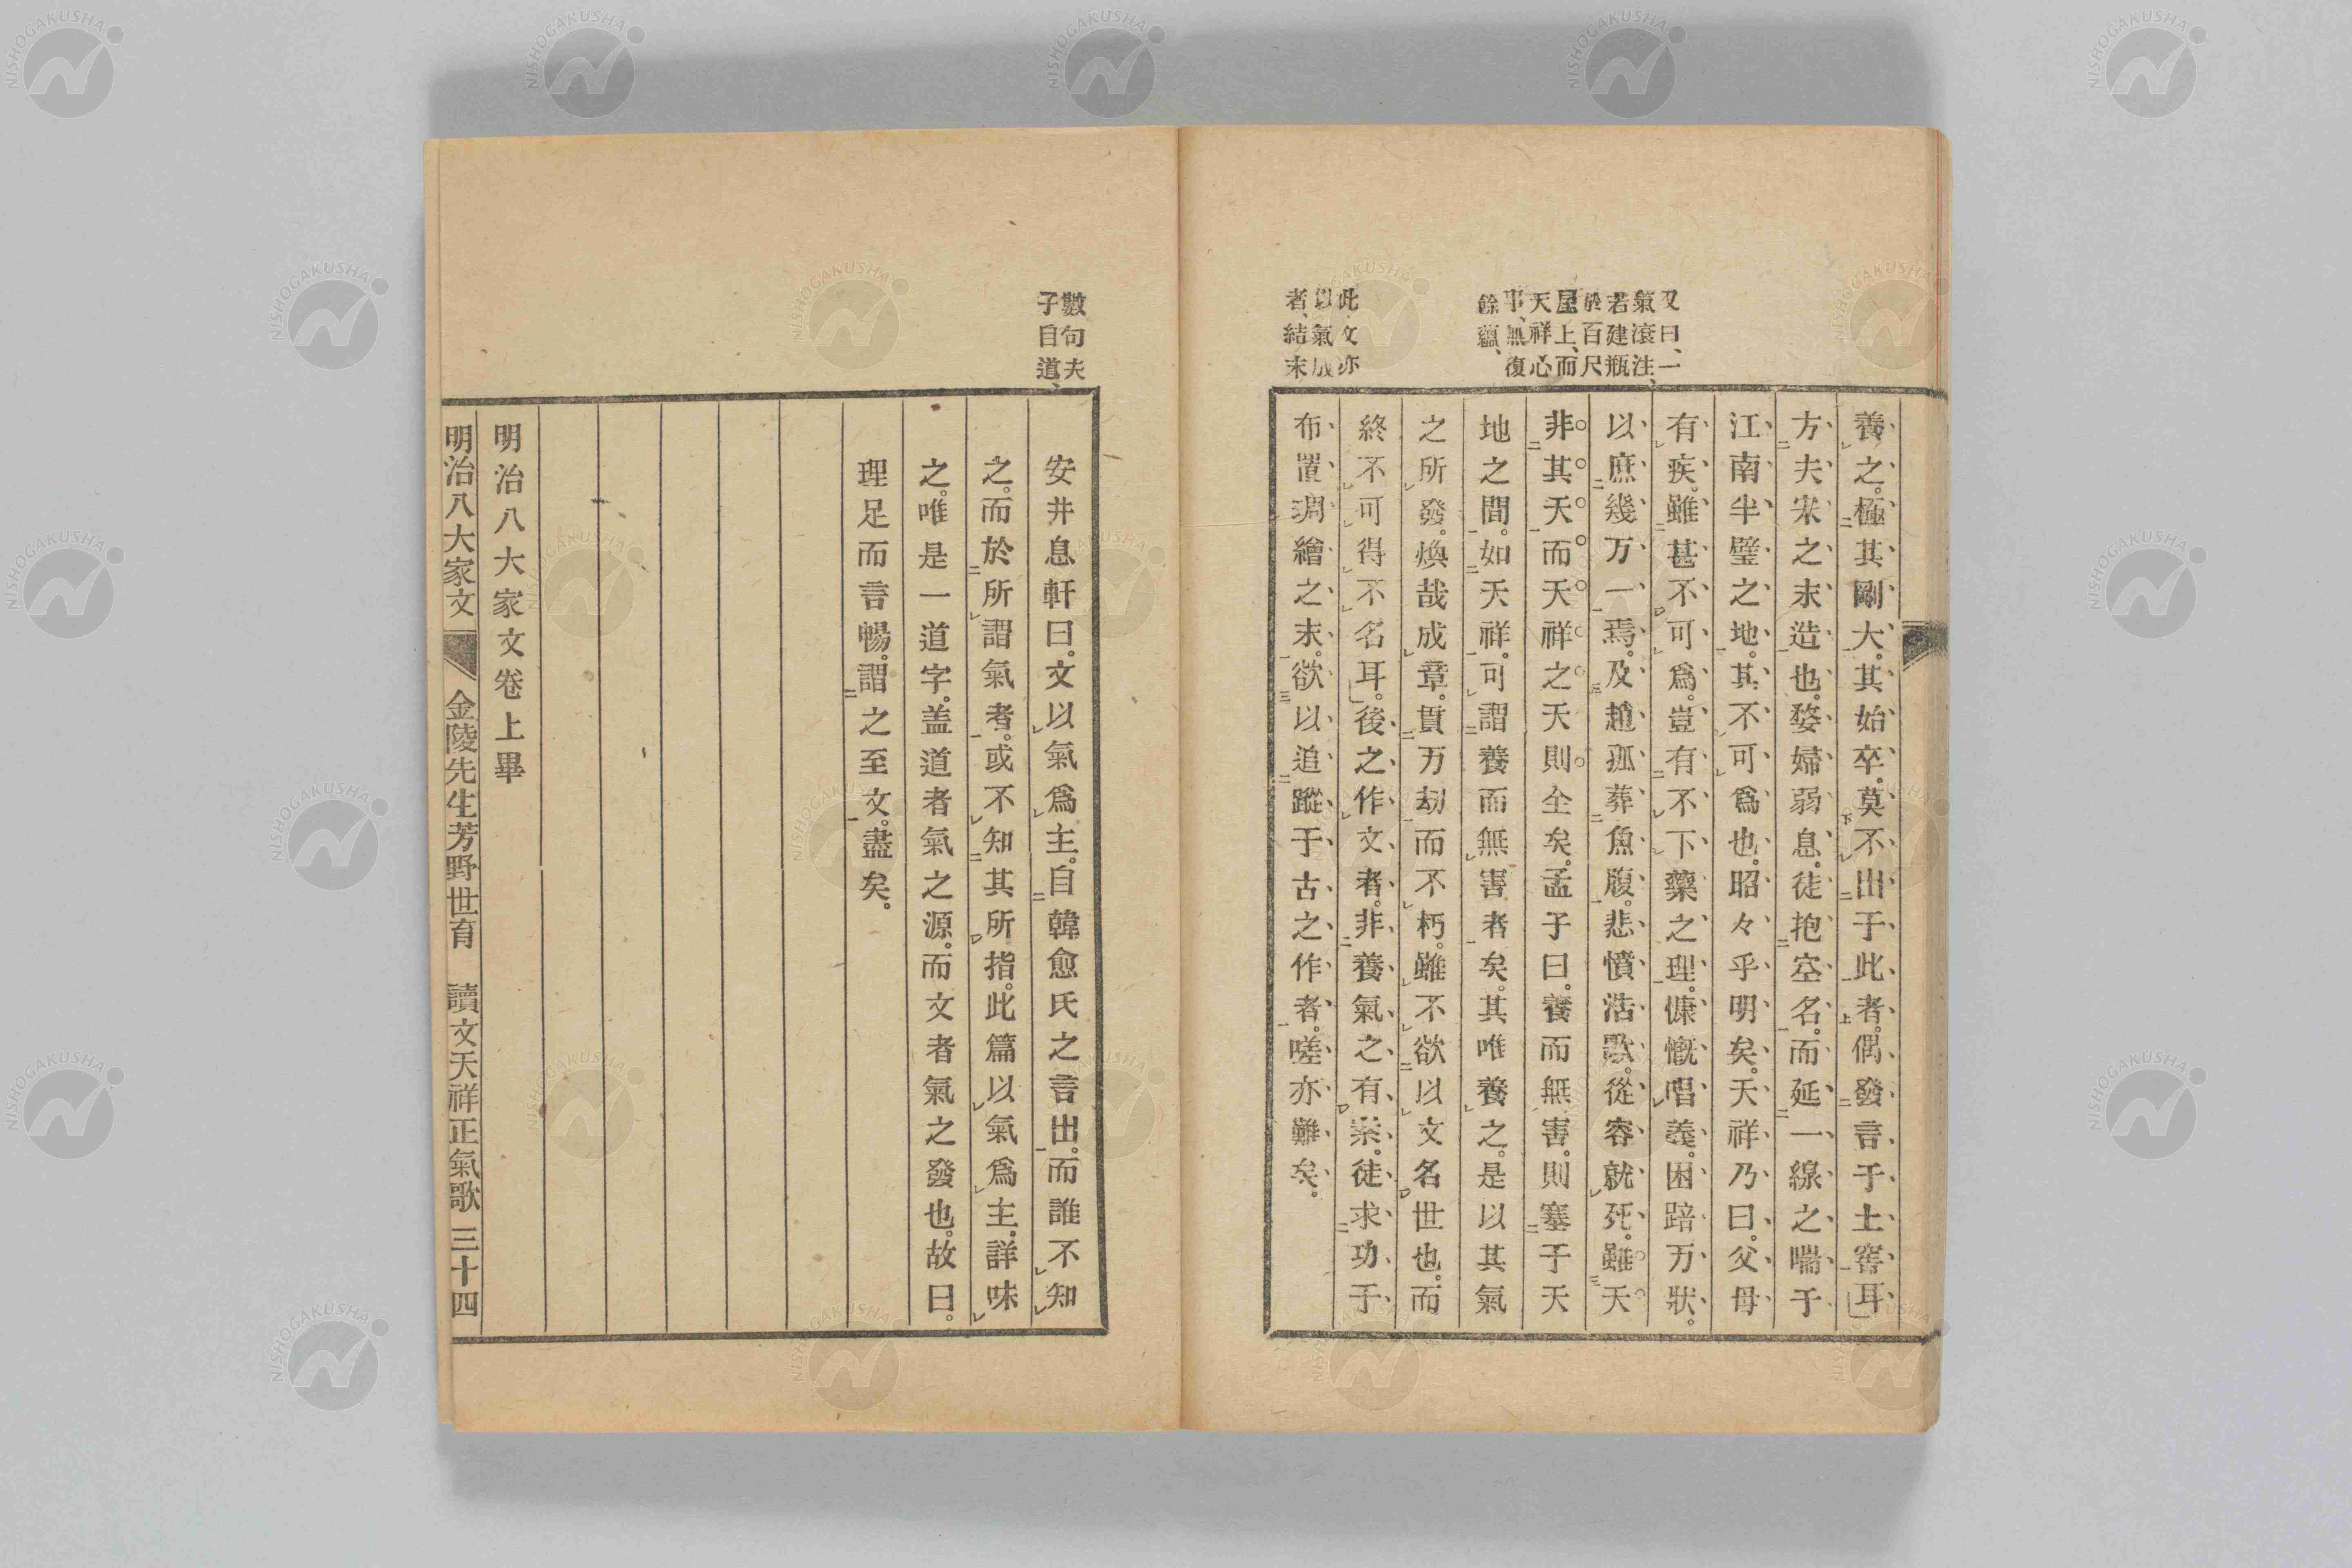 又曰、一
氣滾注、
若建瓶
於百尺
屋上、而
天祥心
事、無復
餘蘊、
此文亦
以氣成
者、結末
養之。極其剛大。其始卒。莫不出于此者。偶發言于土窖耳」
方夫宋之末造也。婺婦弱息。徒抱空名。而延一線之喘于
江南半璧之地。其不可爲也。昭々乎明矣。天祥乃曰。父母
有疾。雖甚不可爲。豈有不下藥之理。慷慨唱義。困踣万狀。
以庶幾万一焉。及趙孤葬魚腹。悲憤浩歌。從容就死。雖天
非其天。而天祥之天則全矣。孟子曰。養而無害。則塞于天
地之間。如天祥。可謂養而無害者矣。其唯養之。是以其氣
之所發。煥哉成章。貫万劫而不朽。雖不欲以文名世也。而
終不可得不名耳」。後之作文者。非養氣之有素。徒求功于
布置凋繪之末。欲以追蹤于古之作者。嗟亦難矣。
數句夫
子自道、
安井息軒曰。文以氣爲主。自韓愈氏之言出。而誰不知
之。而於所謂氣者。或不知其所指。此篇以氣爲主。詳味
之。唯是一道字。盖道者氣之源。而文者氣之發也。故曰。
理足而言暢。謂之至文。盡矣。
明治八大家文卷上畢
明治八大家文 金陵先生芳野世育 讀文天祥正氣歌 三十四